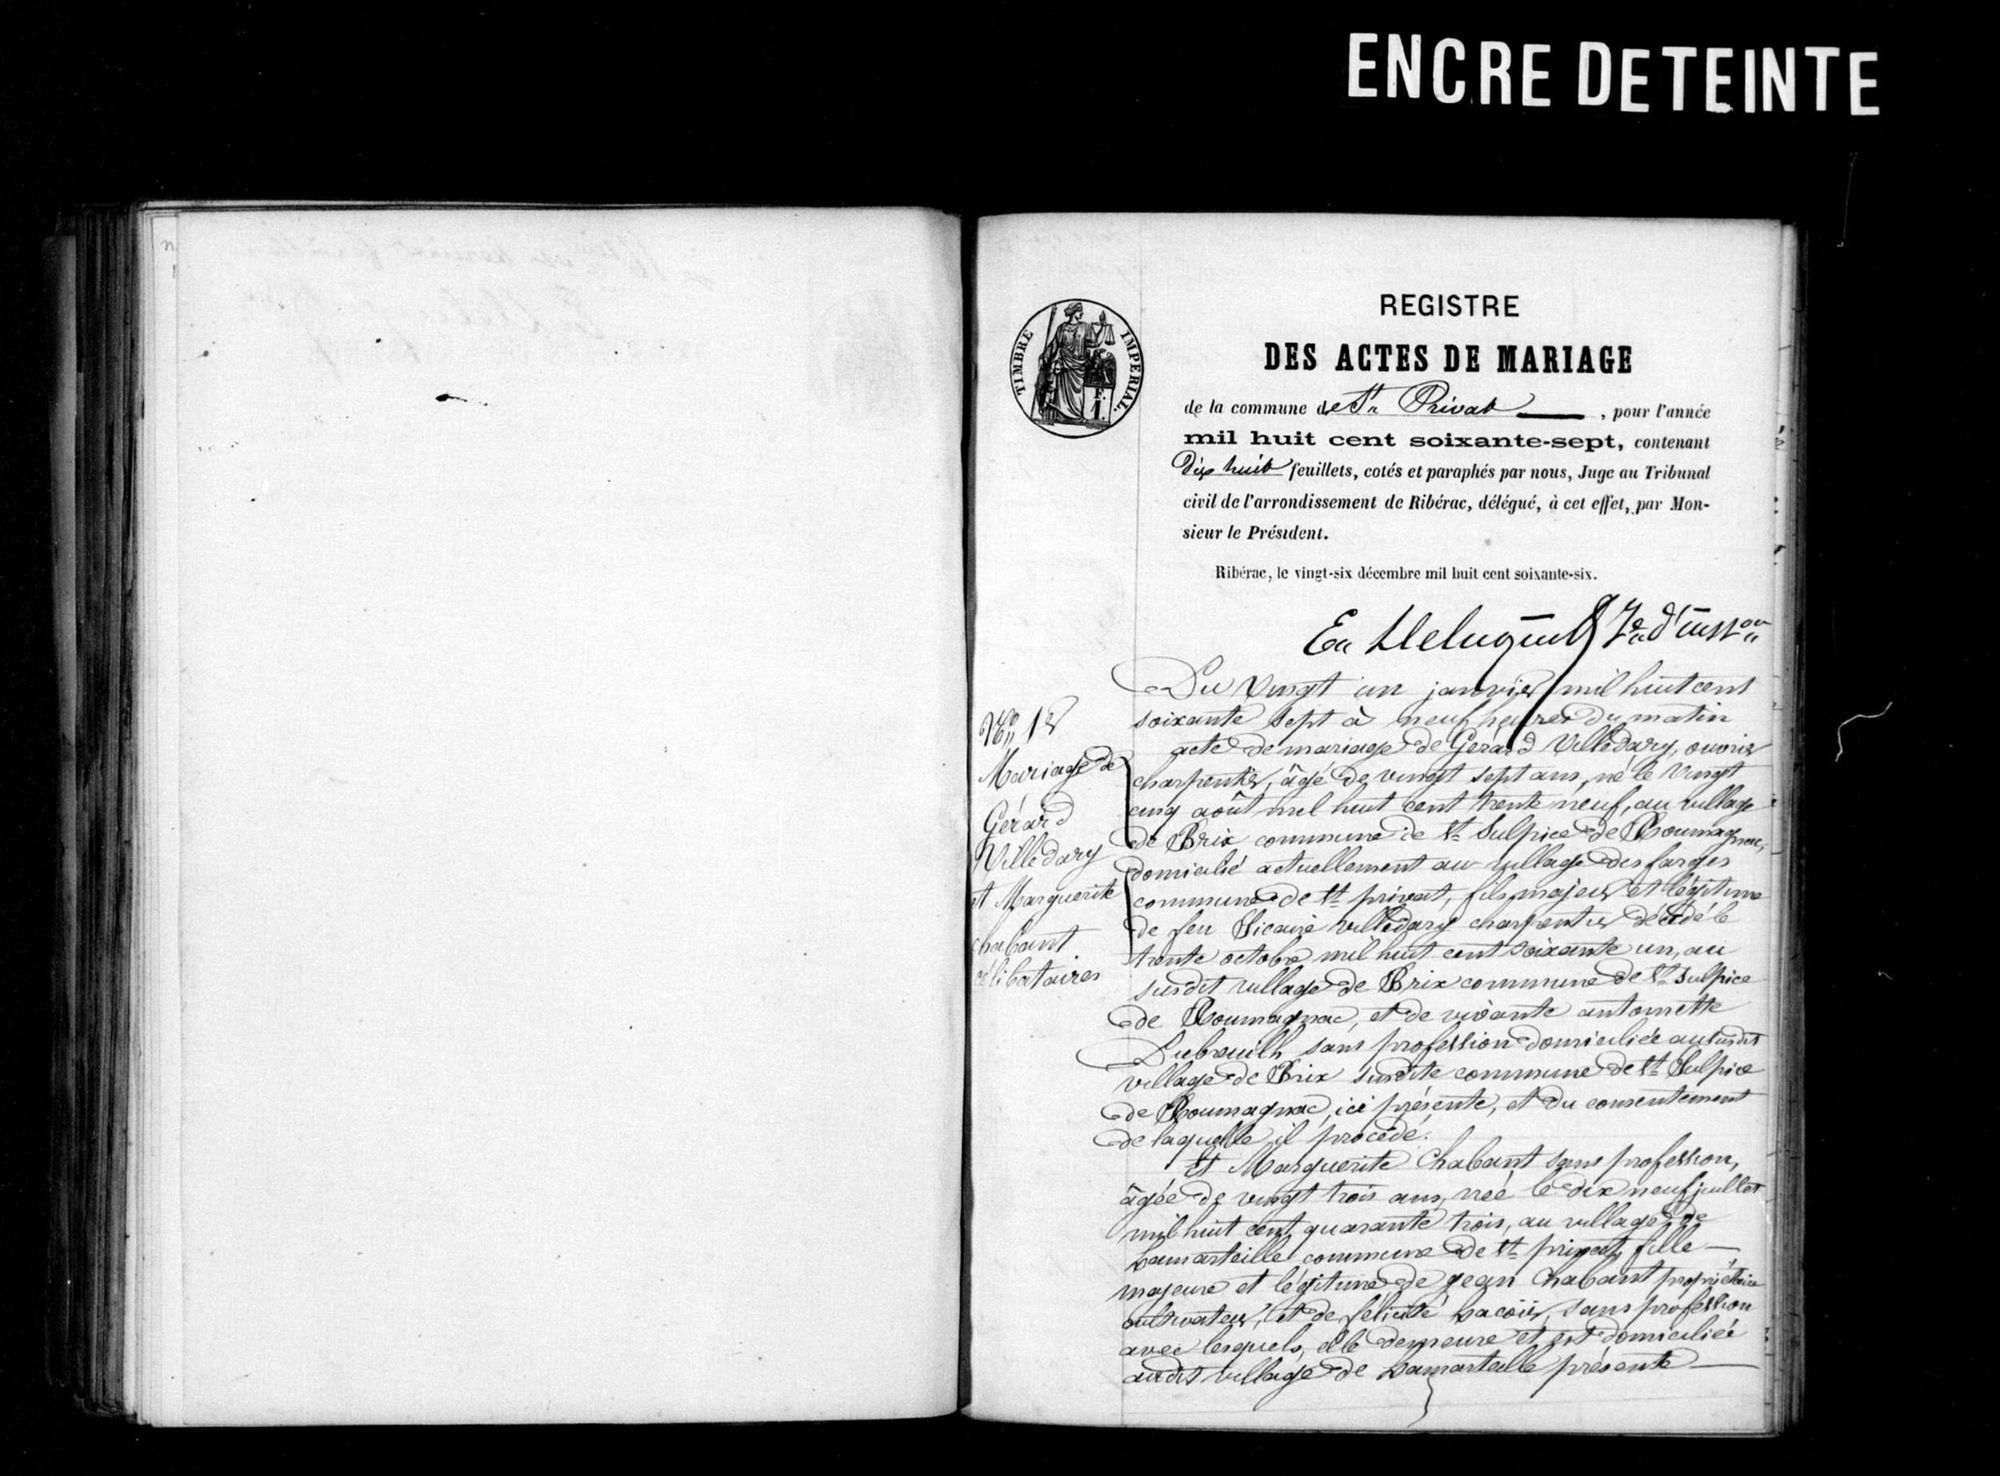 ENCRE DETEINTE
TIMBRE IMPERIAL.
REGISTRE
DES ACTES DE MARIAGE
de la commune de St Privat , pour l'année
mil huit cent soixante-sept, contenant
Dix huit feuillets, cotés et paraphés par nous, Juge au Tribunal
civil de l'arrondissement de Ribérac, délégué, à cet effet, par Mon-
sieur le Président.
Ribérac, le vingt-six décembre mil huit cent soixante-six.
No 1er
Mariage de
Gérard
Villedary
et Marguerite
chabant
célibataires
Du Vingt un janvier mil huit cent
soixante sept à neuf heures du matin
acte de mariage de Gérard Villedary, ouvrier
charpentier, âgé de vingt sept ans, né le Vingt
cinq août mil huit cent trente neuf, au village
de Brix commune de St Sulpice de Roumagnac,
domicilié actuellement au village des farges
commune de St privat, fils majeur et légitime
de feu Sicaire villedary charpentier décédé le
trente octobre mil huit cent soixante un, au
susdit village de Brix commune de St Sulpice
de Roumagnac, et de vivante antoinette
Dubreuilh sans profession domiciliée au susdit
village de Brix susdite commune de St Sulpice
de Roumagnac, ici présente, et du consentement
de laquelle il procède.
Et Marguerite Chabant sans profession,
âgée de vingt trois ans, née le dix neuf juillet
mil huit cent quarante trois, au village de
Lamarteille commune de St privat, fille
majeure et légitime de jean Chabant propriétaire
cultivateur, et de félicité sans profession
avec lesquels, elle demeure et est domiciliée
audit village de Lamarteille présente